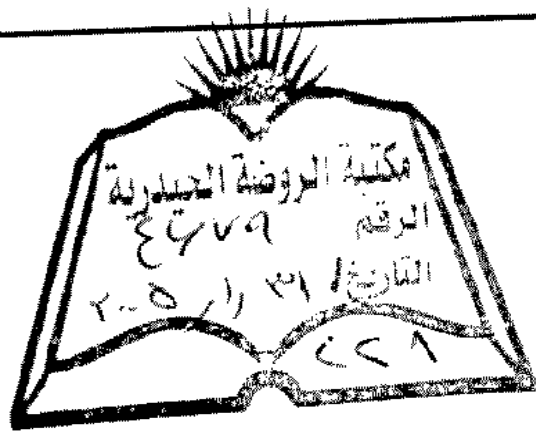 مكتبة الروضة الحيدرية
الرقم ٤٤٧٩
التاريخ / ٣١ / ١ / ٢٠٠٥